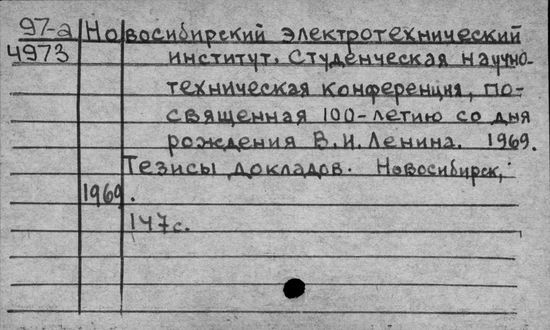 97-а Новосибирский электротехнический
4973 институт. Студенческая научно-
техническая конференция, по-
священная 100-летию со дня
рождения В.И. Ленина. 1969.
Тезисы докладов. Новосибирск,
1969.
147с.